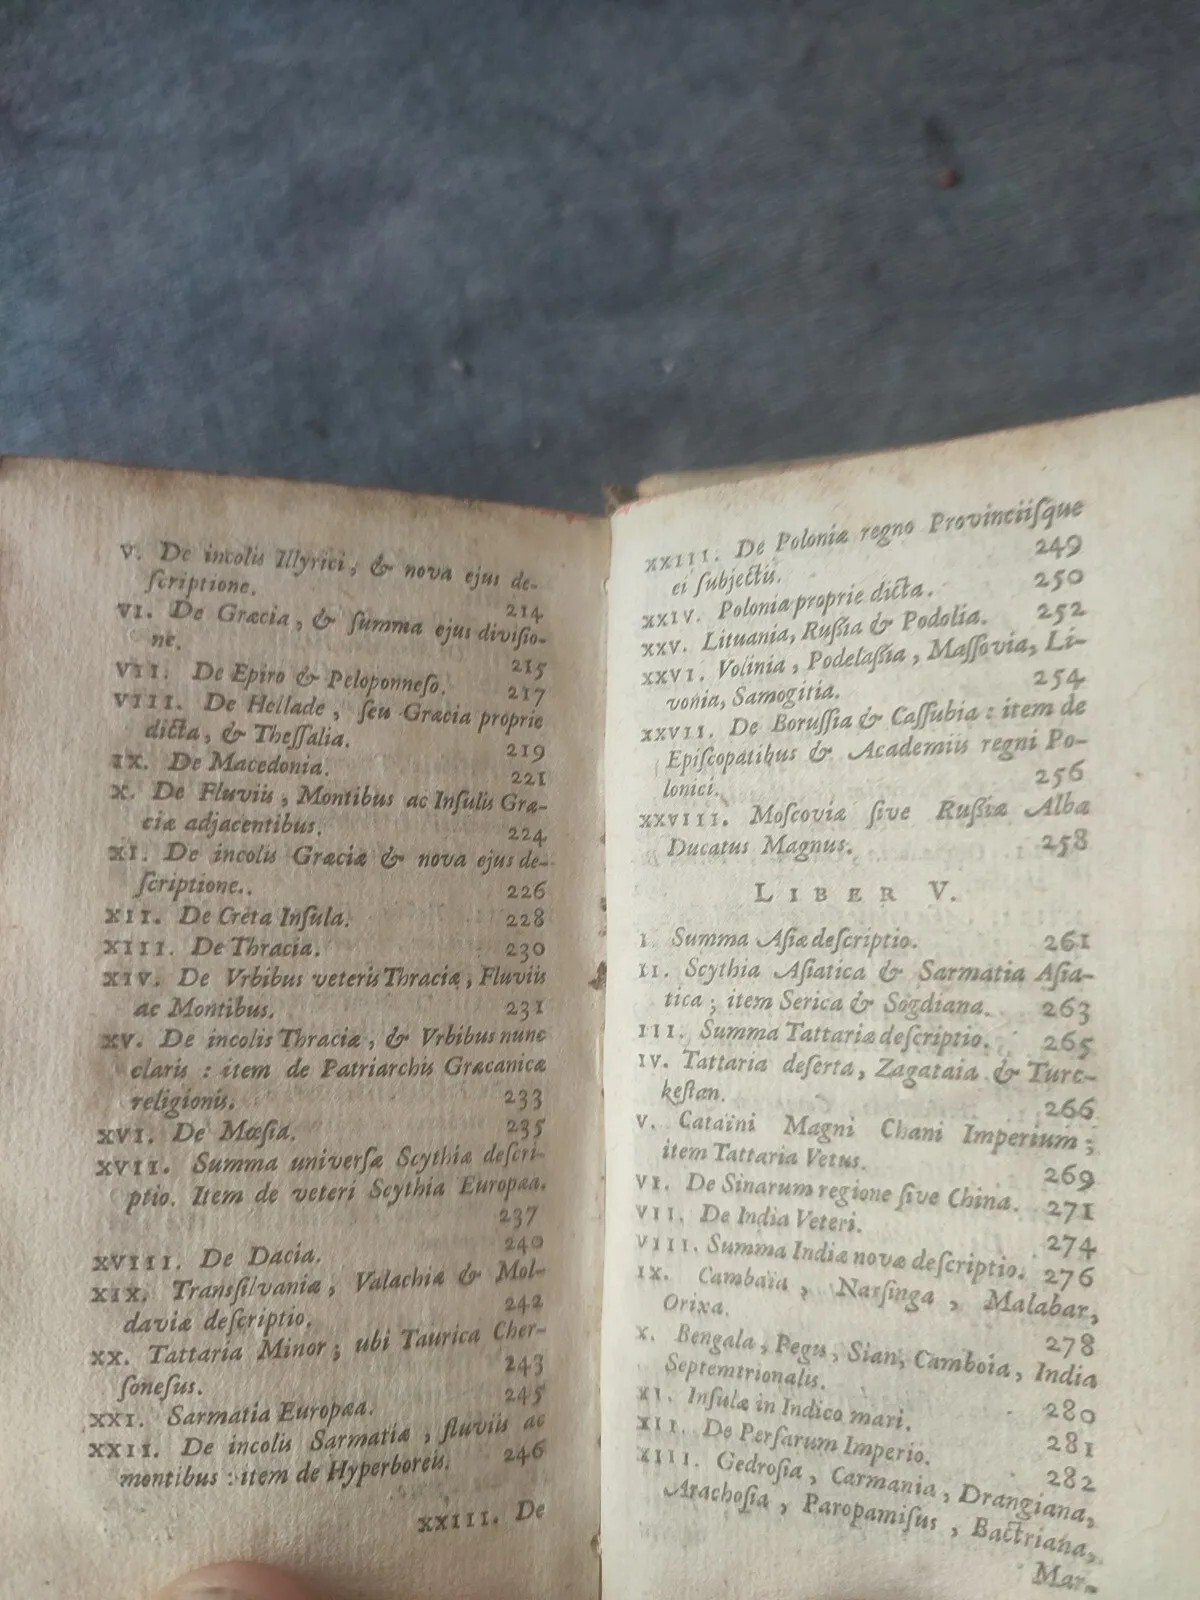 V. De incolis Illyrici, & nova ejus de-
ſcriptione. 214
VI. De Græcia, & ſumma ejus diviſio-
ne. 215
VII. De Epiro & Peloponneſo. 217
VIII. De Hellade, ſeu Græcia proprie
dicta, & Theſſalia. 219
IX. De Macedonia. 221
X. De Fluviis, Montibus ac Inſulis Græ-
ciæ adjacentibus. 224
XI. De incolis Græciæ & nova ejus de-
ſcriptione. 226
XII. De Creta Inſula. 228
XIII. De Thracia. 230
XIV. De Vrbibus veteris Thraciæ, Fluviis
ac Montibus. 231
XV. De incolis Thraciæ, & Vrbibus nunc
claris : item de Patriarchis Græcanicæ
religionis. 233
XVI. De Mœſia. 235
XVII. Summa univerſæ Scythiæ deſcri-
ptio. Item de veteri Scythia Europæa.
237
XVIII. De Dacia. 240
XIX. Transſilvaniæ, Valachiæ & Mol-
daviæ deſcriptio. 242
XX. Tattaria Minor; ubi Taurica Cher-
ſoneſus. 243
XXI. Sarmatia Europæa. 245
XXII. De incolis Sarmatiæ, fluviis ac
montibus : item de Hyperboreis. 246
XXIII. De
XXIII. De Poloniæ regno Provinciiſque
ei ſubjectis. 249
XXIV. Polonia proprie dicta. 250
XXV. Lituania, Ruſſia & Podolia. 252
XXVI. Volinia, Podelaſſia, Maſſovia, Li-
vonia, Samogitia. 254
XXVII. De Boruſſia & Caſſubia : item de
Epiſcopatibus & Academiis regni Po-
lonici. 256
XXVIII. Moſcoviæ ſive Ruſſiæ Albæ
Ducatus Magnus. 258
LIBER V.
I. Summa Aſiæ deſcriptio. 261
II. Scythia Aſiatica & Sarmatia Aſia-
tica ; item Serica & Sogdiana. 263
III. Summa Tattariæ deſcriptio. 265
IV. Tattaria deſerta, Zagataia & Turc-
keſtan. 266
V. Cataïni Magni Chani Imperium ;
item Tattaria Vetus. 269
VI. De Sinarum regione ſive China. 271
VII. De India Veteri. 274
VIII. Summa Indiæ novæ deſcriptio. 276
IX. Cambaïa, Narſinga, Malabar,
Orixa. 278
X. Bengala, Pegu, Sian, Camboia, India
Septemtrionalis. 280
XI. Inſulæ in Indico mari. 281
XII. De Perſarum Imperio. 282
XIII. Gedroſia, Carmania, Drangiana,
Arachoſia, Paropamiſus, Bactriana,
Mar-